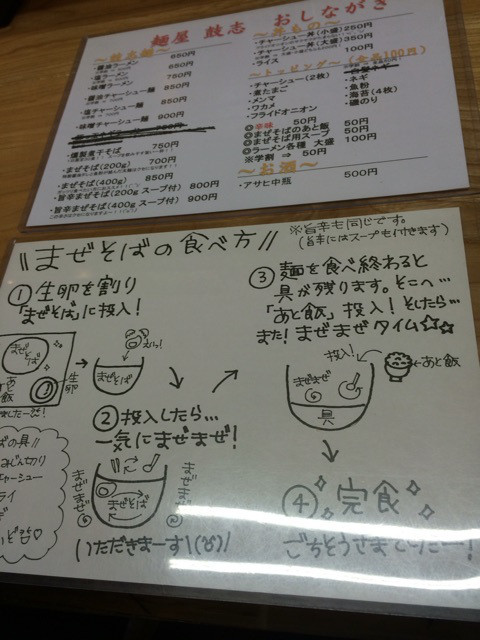 麺屋 鼓志 おしながき
～鼓志麺～
・醤油ラーメン 650円
・塩ラーメン 650円
・味噌ラーメン 750円
・醤油チャーシュー麺 850円
・塩チャーシュー麺 850円
・味噌チャーシュー麺 900円
・燻製煮干そば 750円
・まぜそば(200g) 700円
・まぜそば(400g) 850円
・旨辛まぜそば(200g スープ付) 800円
・旨辛まぜそば(400g スープ付) 900円
～丼もの～
・チャーシュー丼(小盛) 250円
・チャーシュー丼(大盛) 350円
・ライス 100円
～トッピング～(全各100円)
・チャーシュー(2枚)
・煮たまご
・メンマ
・ワカメ
・フライドオニオン
・ネギ
・魚粉
・海苔(4枚)
・磯のり
◎辛味 50円
◎まぜそばのあと飯 50円
◎まぜそば用スープ 50円
◎ラーメン各種 大盛 100円
※学割 ⇒ 50円
～お酒～
・アサヒ中瓶 500円
\\まぜそばの食べ方//
※旨辛も同じです。
(旨辛にはスープも付きます)
① 生卵を割り
「まぜそば」に投入!
まぜそば
あと飯
生卵
まぜそば
② 投入したら…
一気にまぜまぜ!
まぜまぜ
まぜそば
いただきまーす
③ 麺を食べ終わると
具が残ります。そこへ…
「あと飯」投入! そしたら…
また! まぜまぜタイム☆☆
投入!
あと飯
まぜまぜ
具
④ 完食
ごちそうさまでしたー!